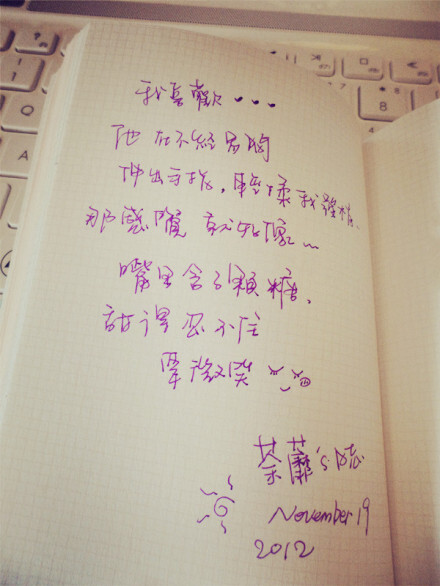 我喜歡...
他在不經易的
伸出手指,輕揉我髮梢、
那感覺 就如像~
嘴里含了顆糖,
甜得忍不住
微笑
荼蘼's 日志
November 19
2012